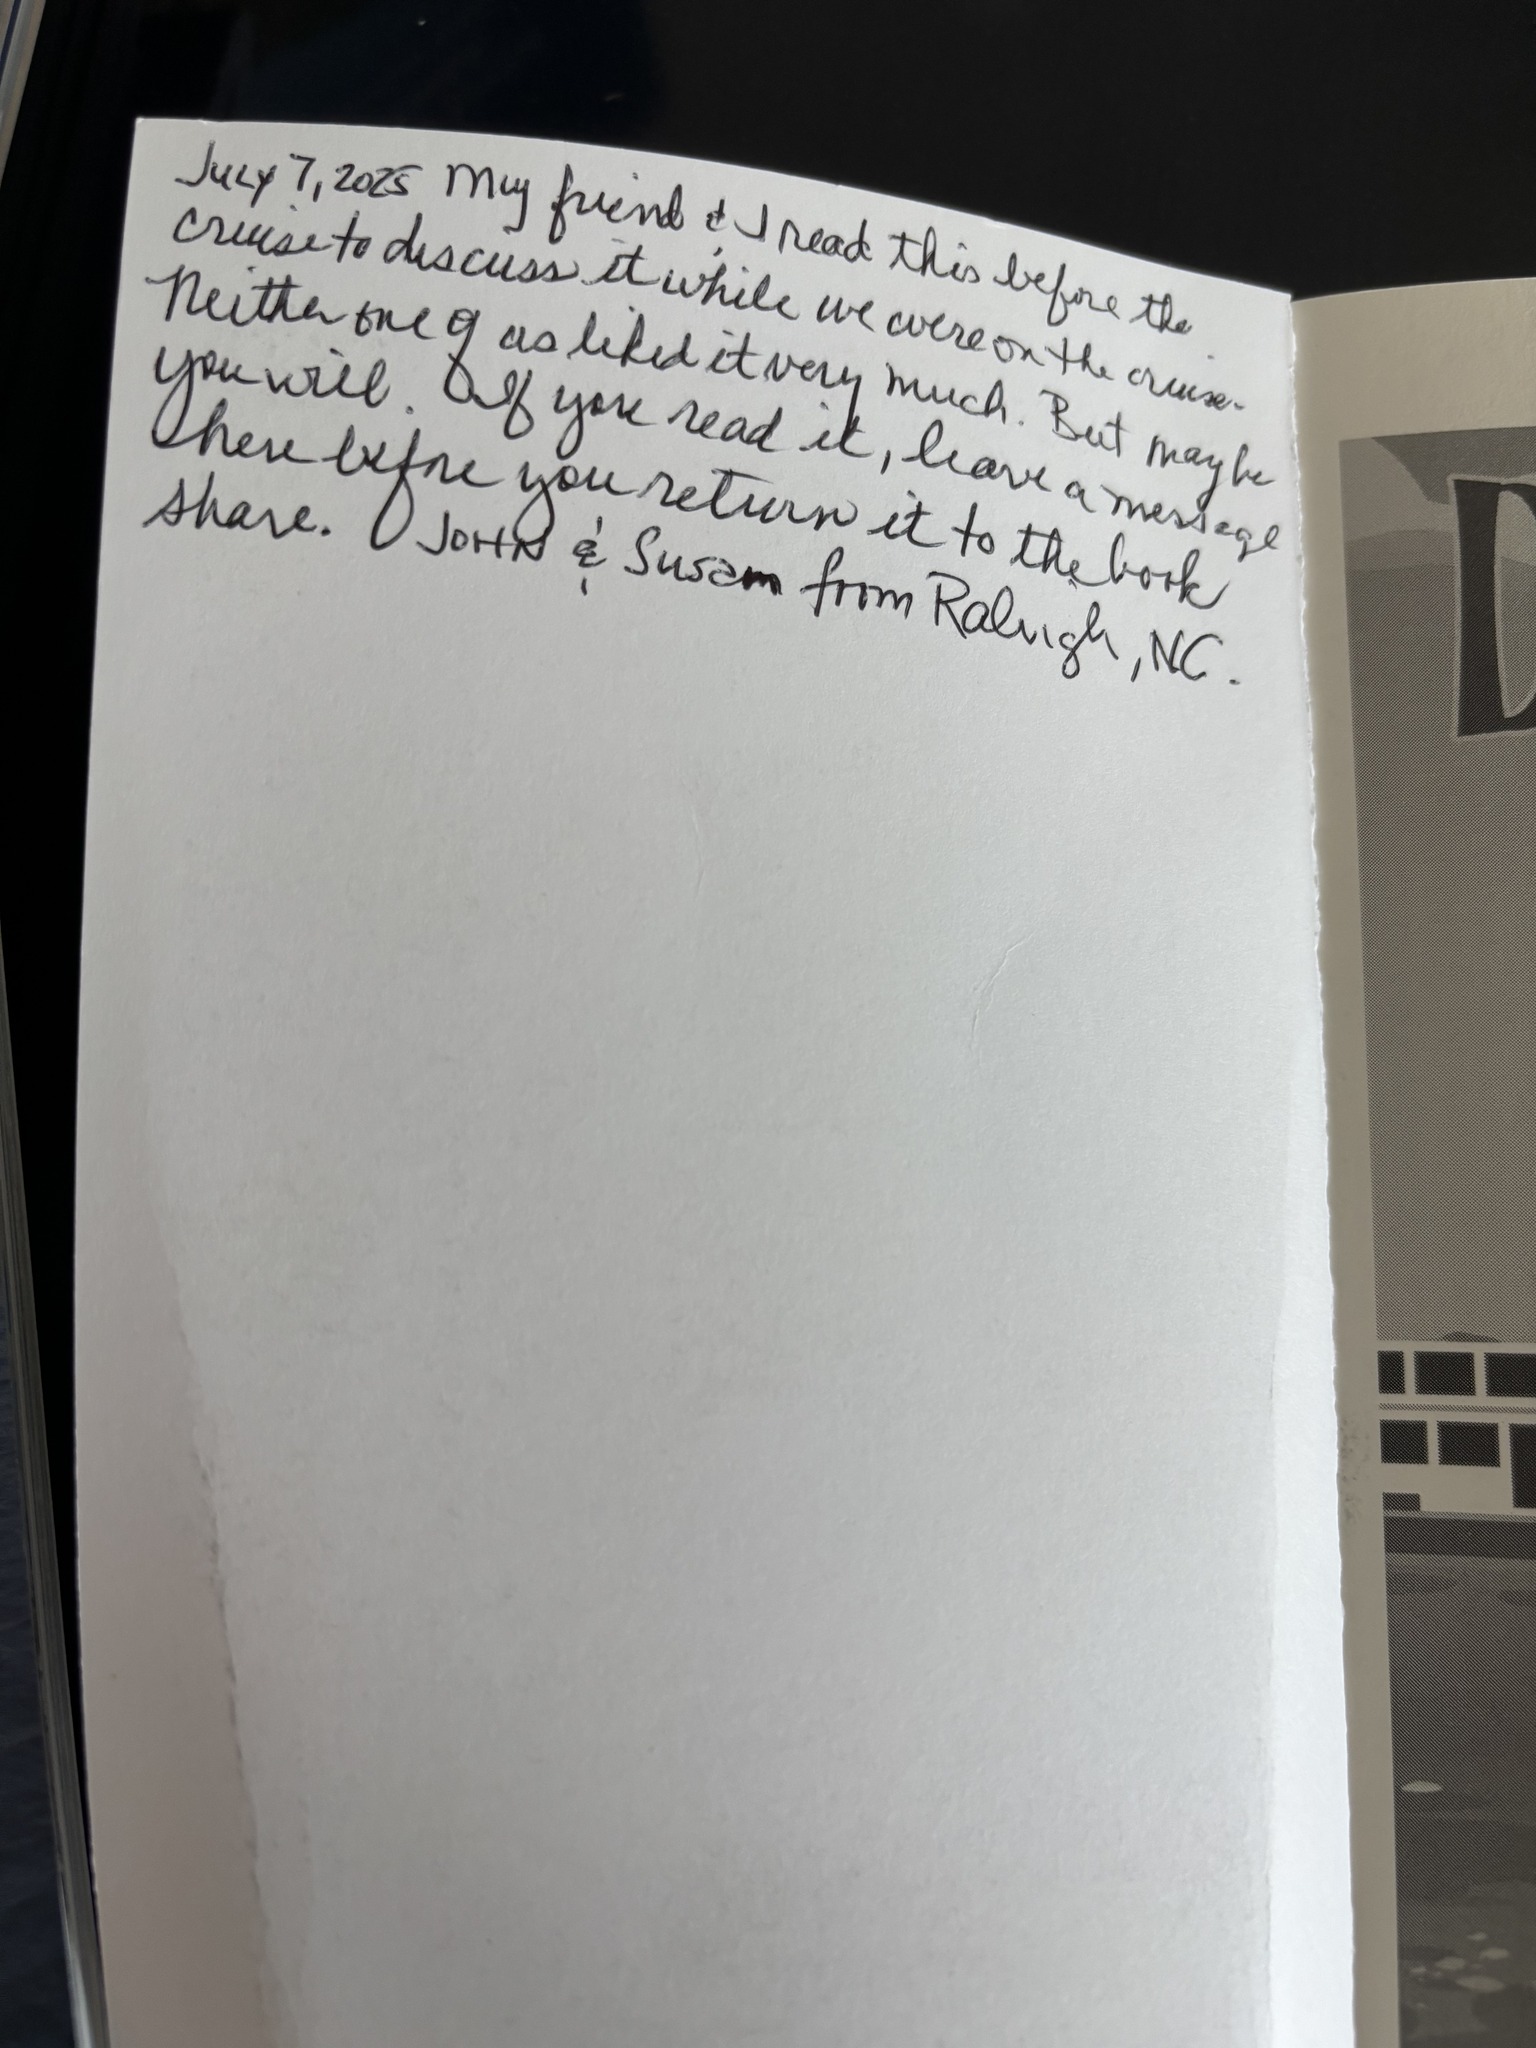 July 7, 2025 My friend & I read this before the
cruise to discuss it while we were on the cruise.
Neither one of us liked it very much. But maybe
you will. If you read it, leave a message
here before you return it to the book
share. JOHN & Susan from Raleigh, NC.
D